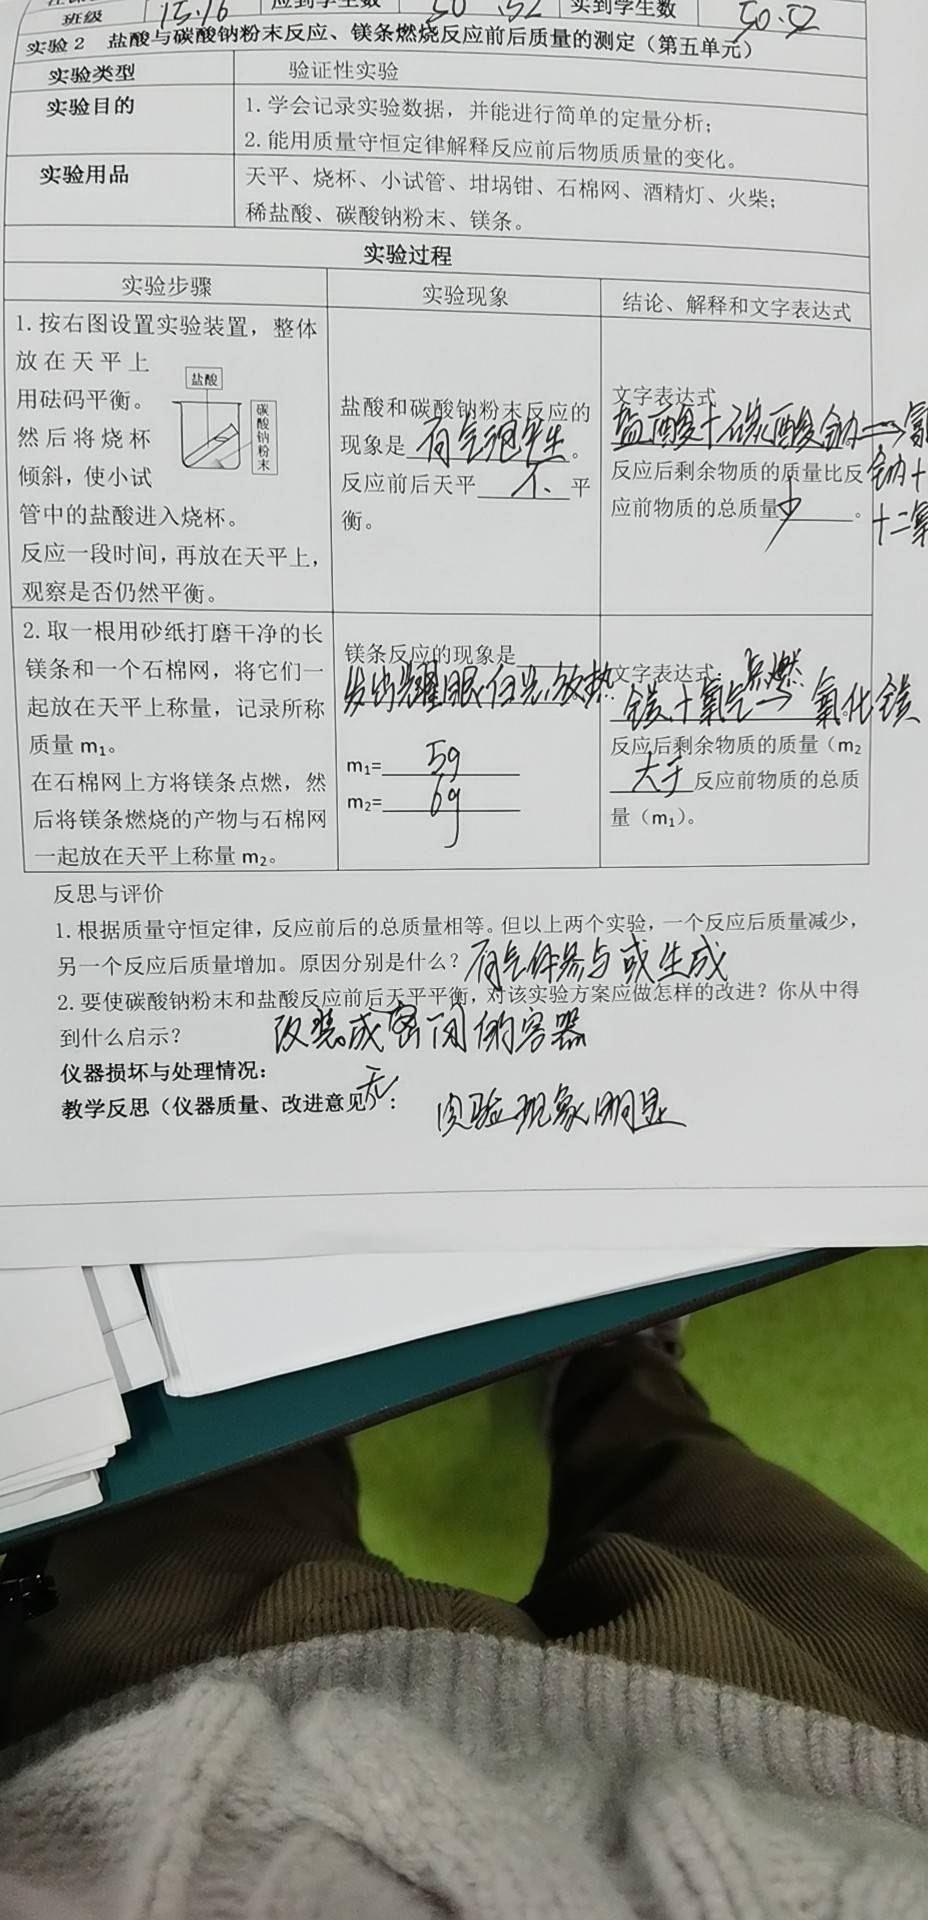 班级 15.16 应到学生数 50 .52 实到学生数 50.52
实验2 盐酸与碳酸钠粉末反应、镁条燃烧反应前后质量的测定（第五单元）
实验类型 验证性实验
实验目的 1.学会记录实验数据，并能进行简单的定量分析；
2.能用质量守恒定律解释反应前后物质质量的变化。
实验用品 天平、烧杯、小试管、坩埚钳、石棉网、酒精灯、火柴；
稀盐酸、碳酸钠粉末、镁条。
实验过程
实验步骤 实验现象 结论、解释和文字表达式
1.按右图设置实验装置，整体
放在天平上
用砝码平衡。
然后将烧杯
倾斜，使小试
管中的盐酸进入烧杯。
反应一段时间，再放在天平上，
观察是否仍然平衡。
盐酸
碳酸钠粉末
盐酸和碳酸钠粉末反应的
现象是有气泡产生。
反应前后天平 不 平
衡。
文字表达式
盐酸+碳酸钠→氯
钠+
+二氧
反应后剩余物质的质量比反
应前物质的总质量 少 。
2.取一根用砂纸打磨干净的长
镁条和一个石棉网，将它们一
起放在天平上称量，记录所称
质量m₁。
在石棉网上方将镁条点燃，然
后将镁条燃烧的产物与石棉网
一起放在天平上称量m₂。
镁条反应的现象是
发出耀眼白光.放热
m₁= 5g
m₂= 6g
文字表达式
点燃
镁+氧气→氧化镁
反应后剩余物质的质量（m₂
大于 反应前物质的总质
量（m₁）。
反思与评价
1.根据质量守恒定律，反应前后的总质量相等。但以上两个实验，一个反应后质量减少，
另一个反应后质量增加。原因分别是什么？有气体参与或生成
2.要使碳酸钠粉末和盐酸反应前后天平平衡，对该实验方案应做怎样的改进？你从中得
到什么启示？ 改装成密闭的容器
仪器损坏与处理情况：
无
教学反思（仪器质量、改进意见）： 实验现象明显